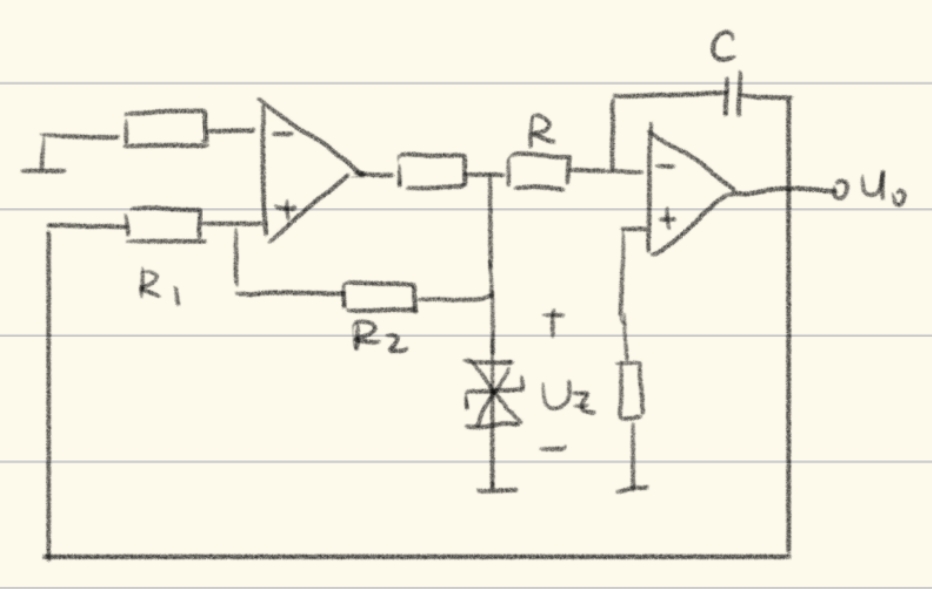 C
R
−
+
−
+
u₀
R₁
R₂
+
U_Z
−